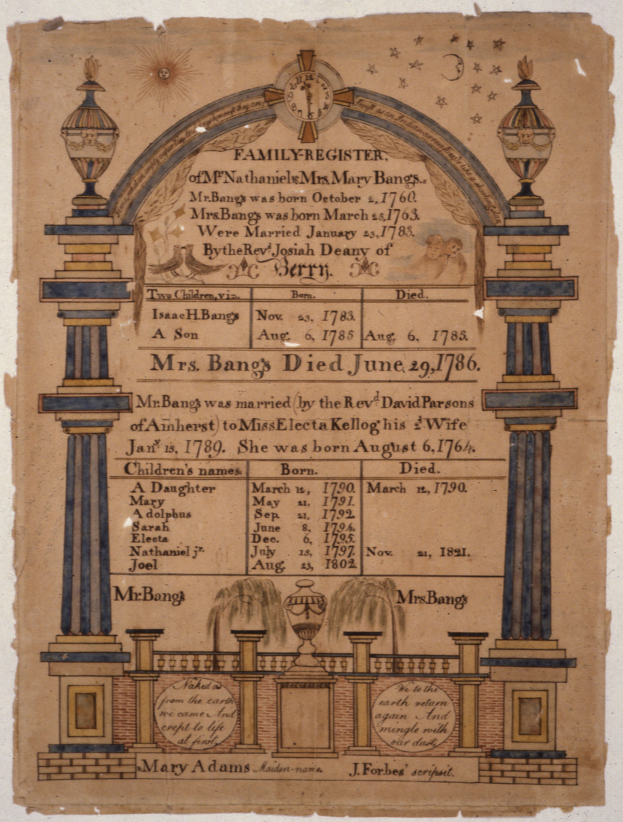 FAMILY-REGISTER,
of Mr. Nathaniel & Mrs. Mary Bangs.
Mr. Bangs was born October 2, 1760.
Mrs. Bangs was born March 25, 1763.
Were Married January 23, 1783.
By the Revd. Josiah Deany of
Berry.
Two Children, viz. Born. Died.
Isaac H. Bangs Nov. 23, 1783.
A Son Aug. 6, 1785 Aug. 6, 1785.
Mrs. Bangs Died June, 29, 1786.
Mr. Bangs was married (by the Revd David Parsons
of Amherst) to Miss Electa Kellog his 2d Wife
Jany. 15, 1789. She was born August 6, 1764.
Children's names. Born. Died.
A Daughter March 12, 1790. March 12, 1790.
Mary May 21, 1791.
Adolphus Sep. 21, 1792.
Sarah June 8, 1794.
Electa Dec. 6, 1795.
Nathaniel jr. July 15, 1797. Nov. 21, 1821.
Joel Aug. 23, 1802.
Mr. Bangs Mrs. Bangs
Naked as
from the earth
we came And
crept to life
at first,
We to the
earth return
again And
mingle with
our dust.
Mary Adams Maiden-name. J. Forbes' scripsit.